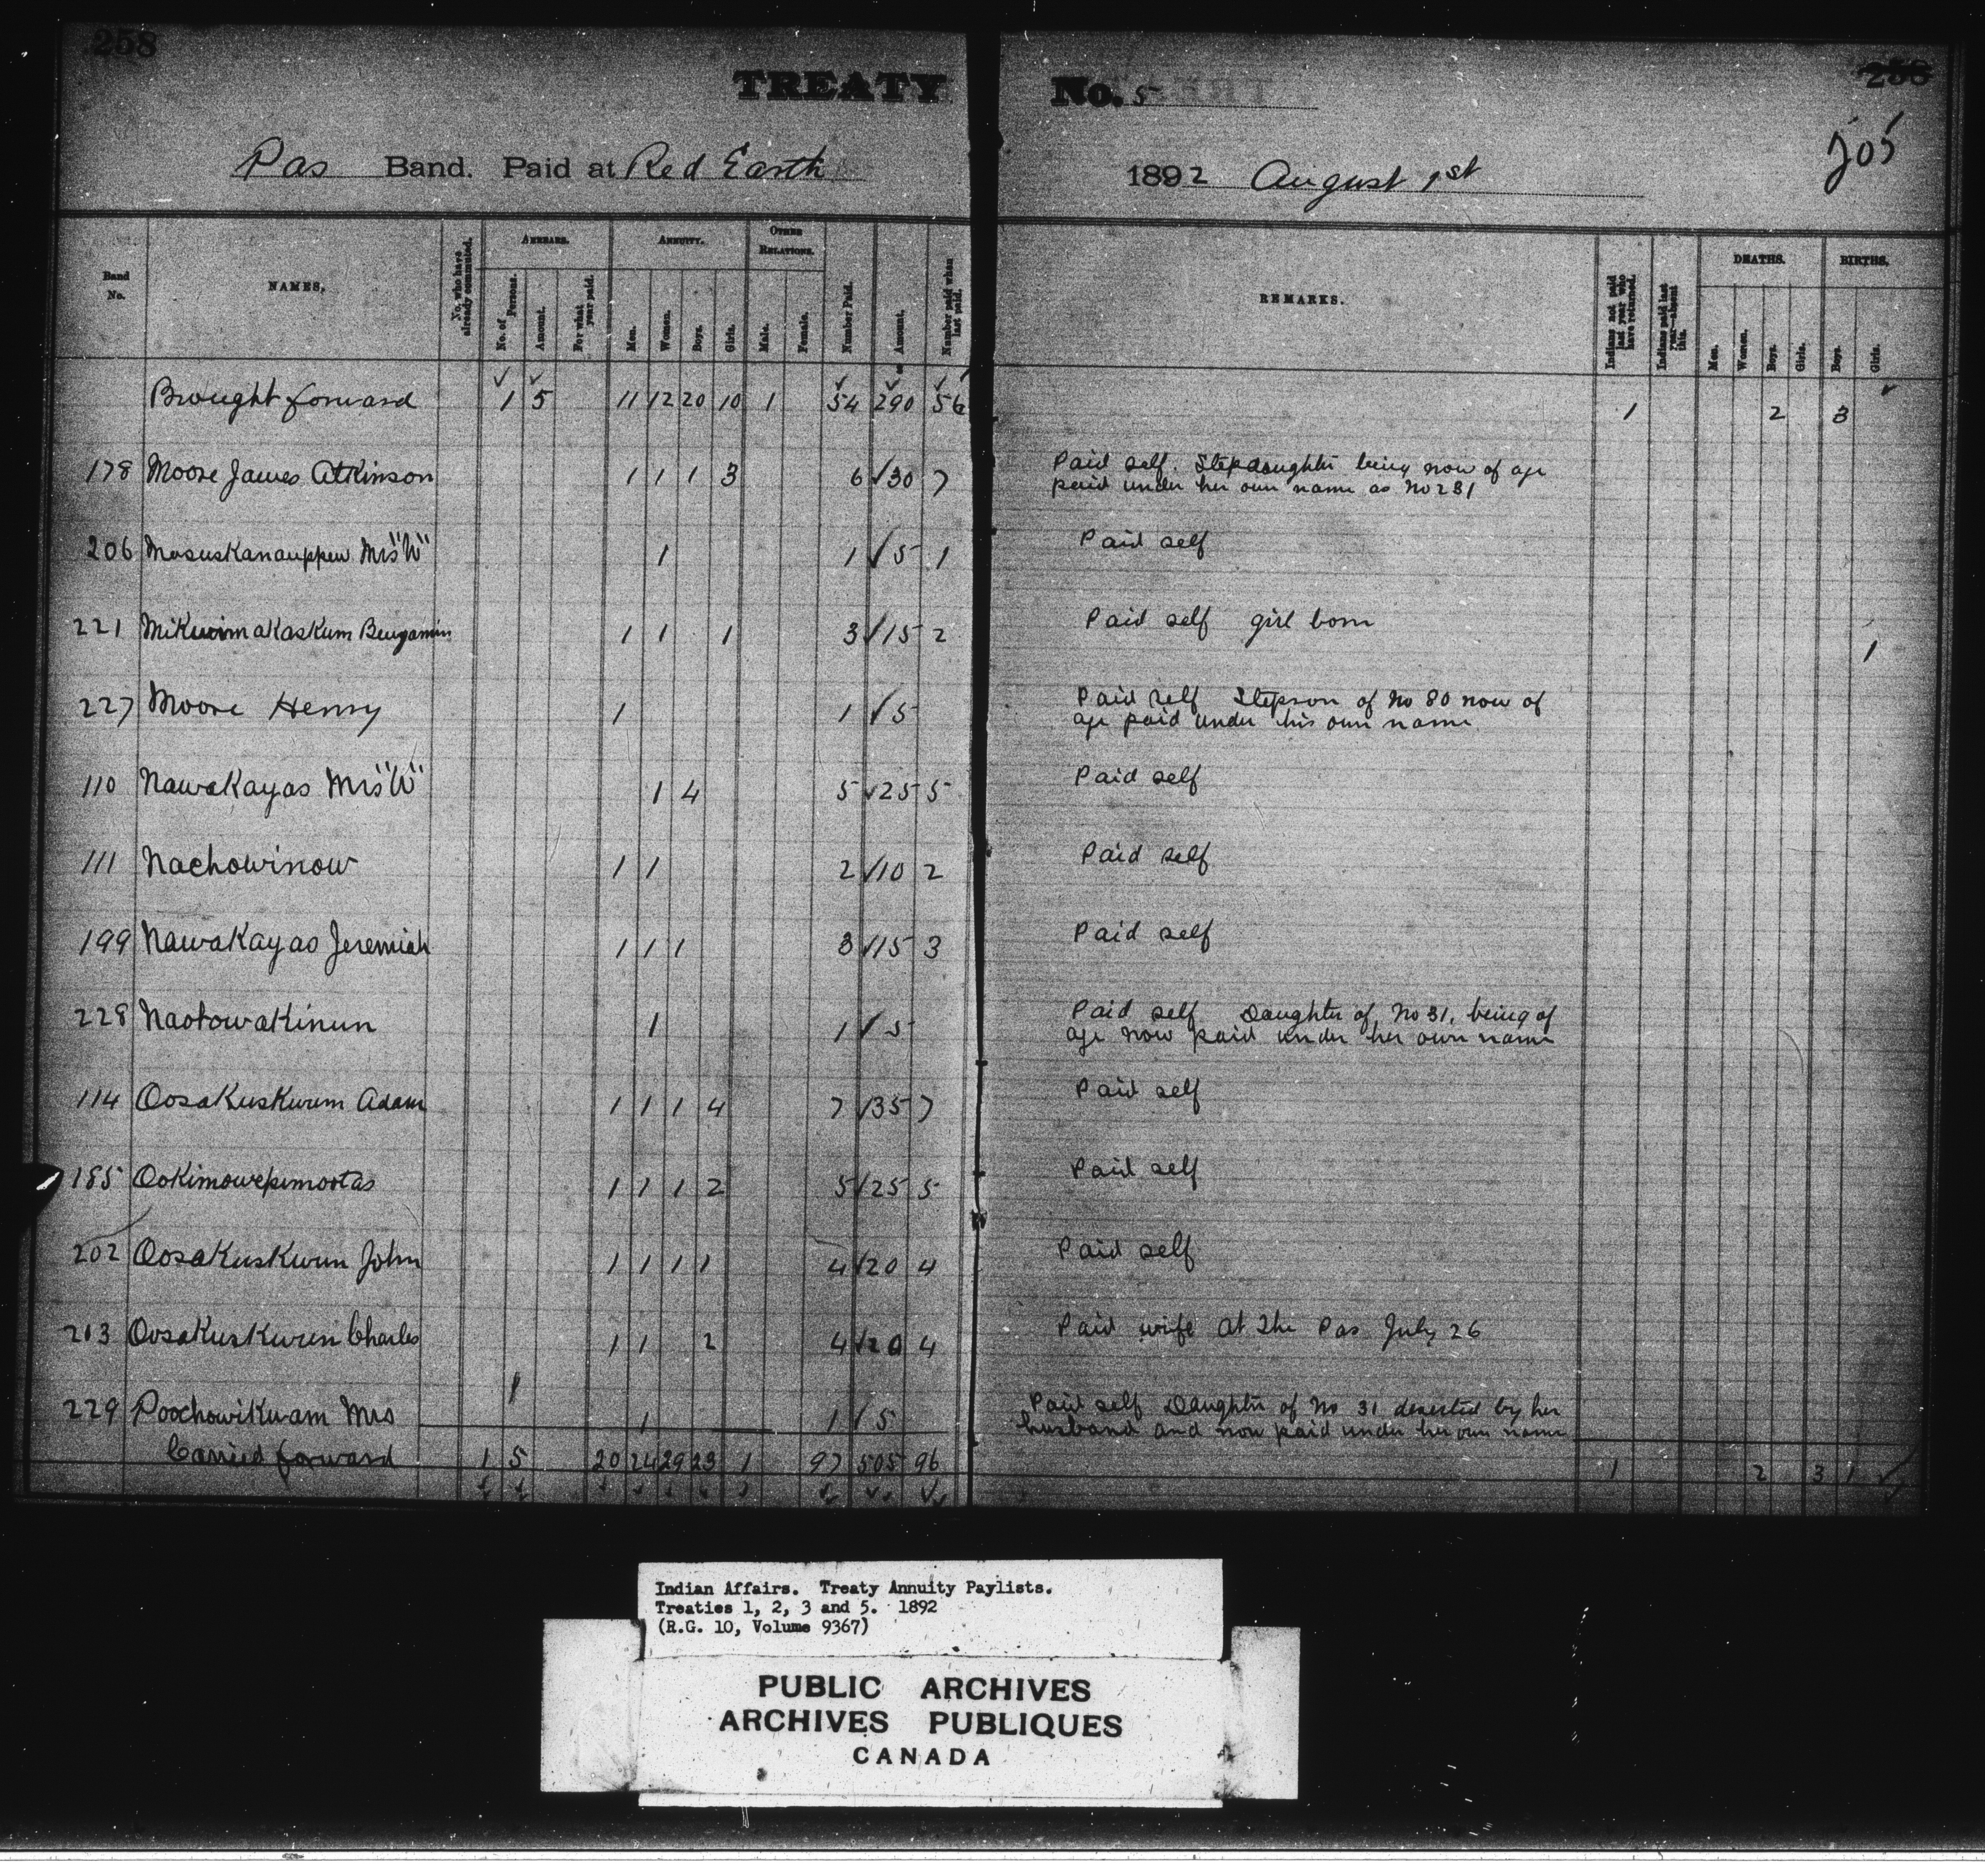 258
TREATY No. 5
258
505
Pas Band. Paid at Red Earth 1892 August 1st
Band No. NAMES. No. who have already commuted. ARREARS. No. of Persons. Amount. For what year paid. ANNUITY. Men. Women. Boys. Girls. OTHER RELATIONS. Male. Female. Number Paid. Amount. Number paid when last paid. REMARKS. Indians not paid last year who have returned. Indians paid last year—absent this. DEATHS. Men. Women. Boys. Girls. BIRTHS. Boys. Girls.
Brought forward 1 5 11 12 20 10 1 54 290 56 1 2 3
178 Moore James Atkinson 1 1 1 3 6 √30 7 Paid self. Stepdaughter being now of age
paid under her own name as No 231
206 Mosuskanauppew Mrs "W" 1 1 √5 1 Paid self
221 Mikwimakaskum Benjamin 1 1 1 3 √15 2 Paid self girl born 1
227 Moore Henry 1 1 √5 Paid self Stepson of No 80 now of
age paid under his own name
110 Nawakayas Mrs "W" 1 4 5 √25 5 Paid self
111 Nachowinow 1 1 2 √10 2 Paid self
199 Nawakayas Jeremiah 1 1 1 3 √15 3 Paid self
228 Naotowakinun 1 1 √5 Paid self Daughter of No 31, being of
age now paid under her own name
114 Oosakuskwun Adam 1 1 1 4 7 √35 7 Paid self
185 Ookimowepimootas 1 1 1 2 5 √25 5 Paid self
202 Oosakuskwun John 1 1 1 1 4 √20 4 Paid self
213 Oosakuskwun Charles 1 1 2 4 √20 4 Paid wife at The Pas July 26
229 Poochowikwam Mrs 1 1 √5 Paid self Daughter of No 31 deserted by her
husband and now paid under her own name
Carried forward 1 5 20 24 29 23 1 97 505 96 1 2 3 1
Indian Affairs. Treaty Annuity Paylists.
Treaties 1, 2, 3 and 5. 1892
(R.G. 10, Volume 9367)
PUBLIC ARCHIVES
ARCHIVES PUBLIQUES
CANADA